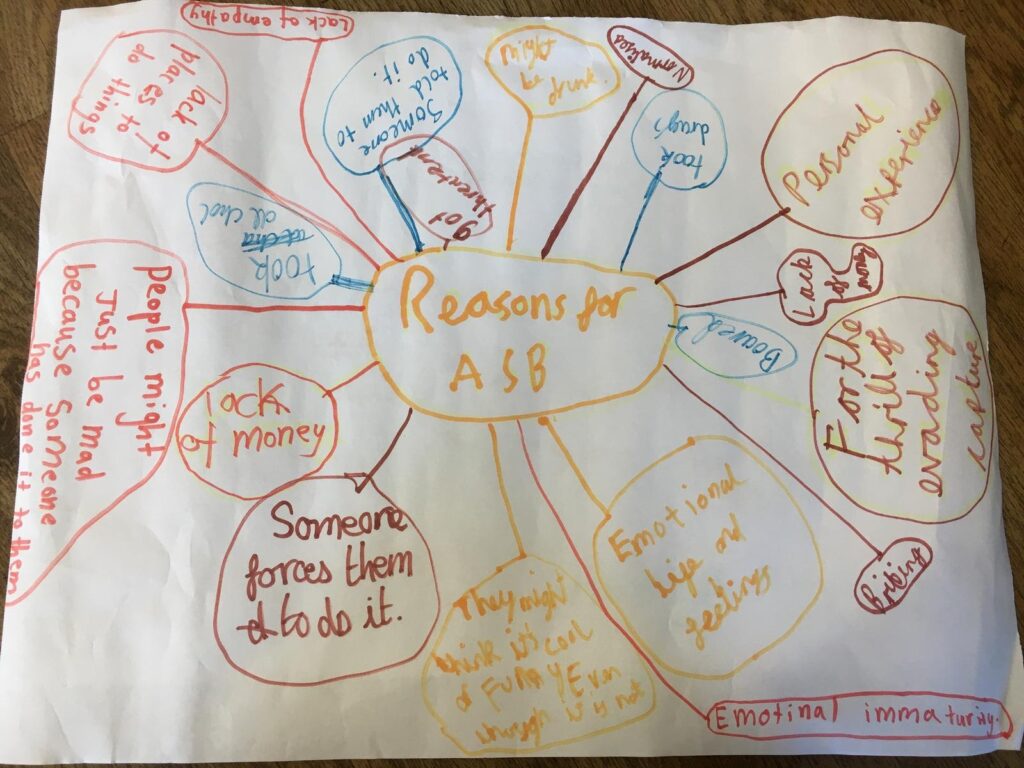 Reasons for
ASB
Lack of empathy
lack of
places to
do things
Someone
told them to
do it.
got
threatened
might
be drunk.
Normalises
took
drugs
Personal
experience
Lack
of
money
Boared
For the
thrill of
evading
capture
Bribing
Emotional
life and
feelings
Emotinal immaturity.
They might
think it's cool
or FUNNY Even
though it is not
Someone
forces them
to do it.
lack
of money
people might
Just be mad
because Someone
has done it to them
TOOK
alchol